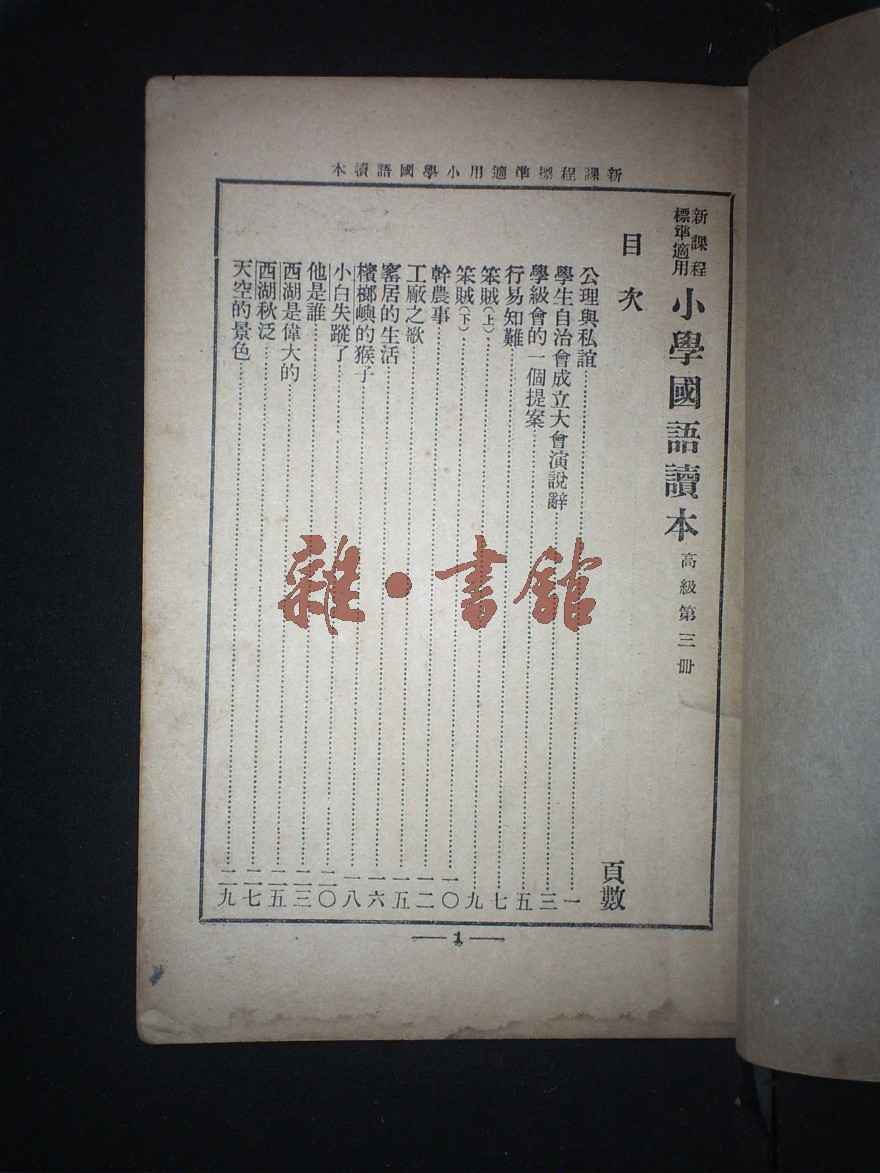 新課程標準適用小學國語讀本
新課程標準適用 小學國語讀本 高級第三冊
目次 頁數
公理與私誼……一
學生自治會成立大會演說辭……三
學級會的一個提案……五
行易知難……七
笨賊(上)……九
笨賊(下)……一〇
幹農事……一二
工廠之歌……一五
窰居的生活……一六
檳榔嶼的猴子……一八
小白失蹤了……二〇
他是誰……二三
西湖是偉大的……二五
西湖秋泛……二七
天空的景色……二九
— 1 —
雜·書館